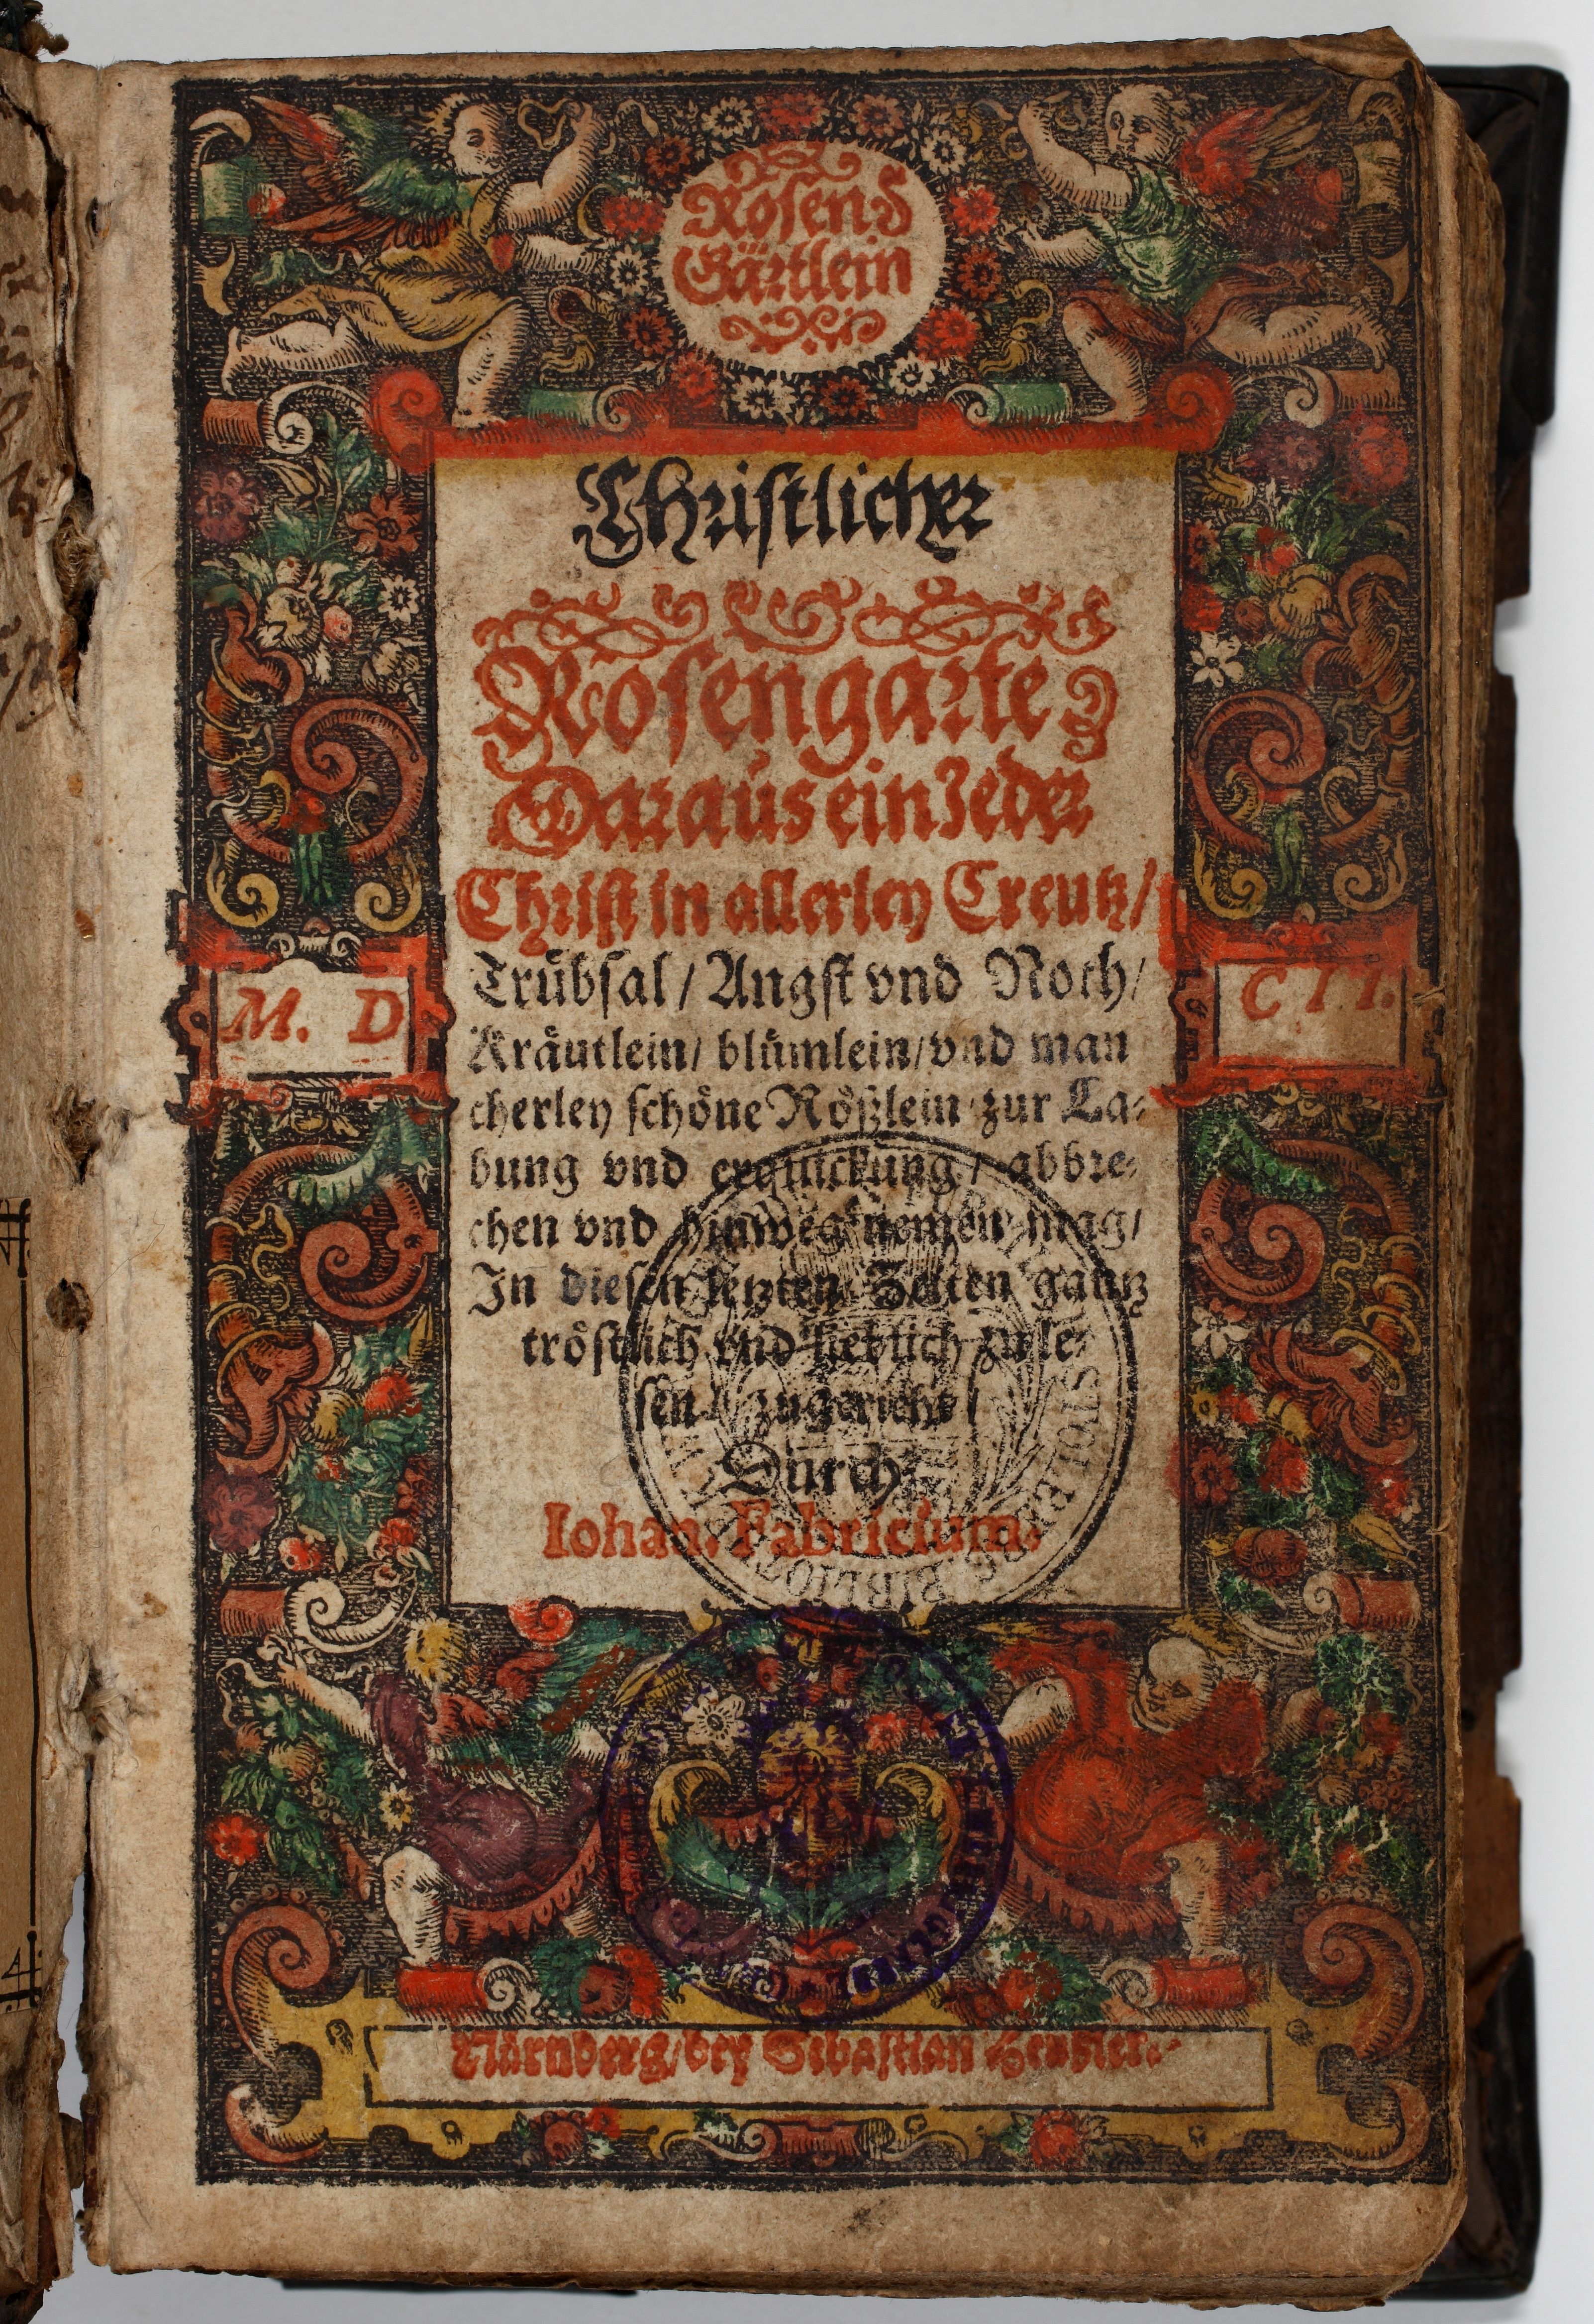 Rosen⸗
Gärtlein
Christlicher
Rosengarte
Daraus ein Jeder
Christ in allerley Creutz/
Trübsal/ Angst vnd Noth/
Kräutlein/ blümlein/ vnd man
cherley schöne Rößlein zur La⸗
bung vnd erquickung/ abbre⸗
chen vnd hinweg nemen mag/
In diesen letzten Zeiten gantz
tröstlich vnd lieblich zu le⸗
sen/ zugericht/
Durch
Iohan. Fabricium.
M. D
C II.
Nürnberg/ bey Sebastian